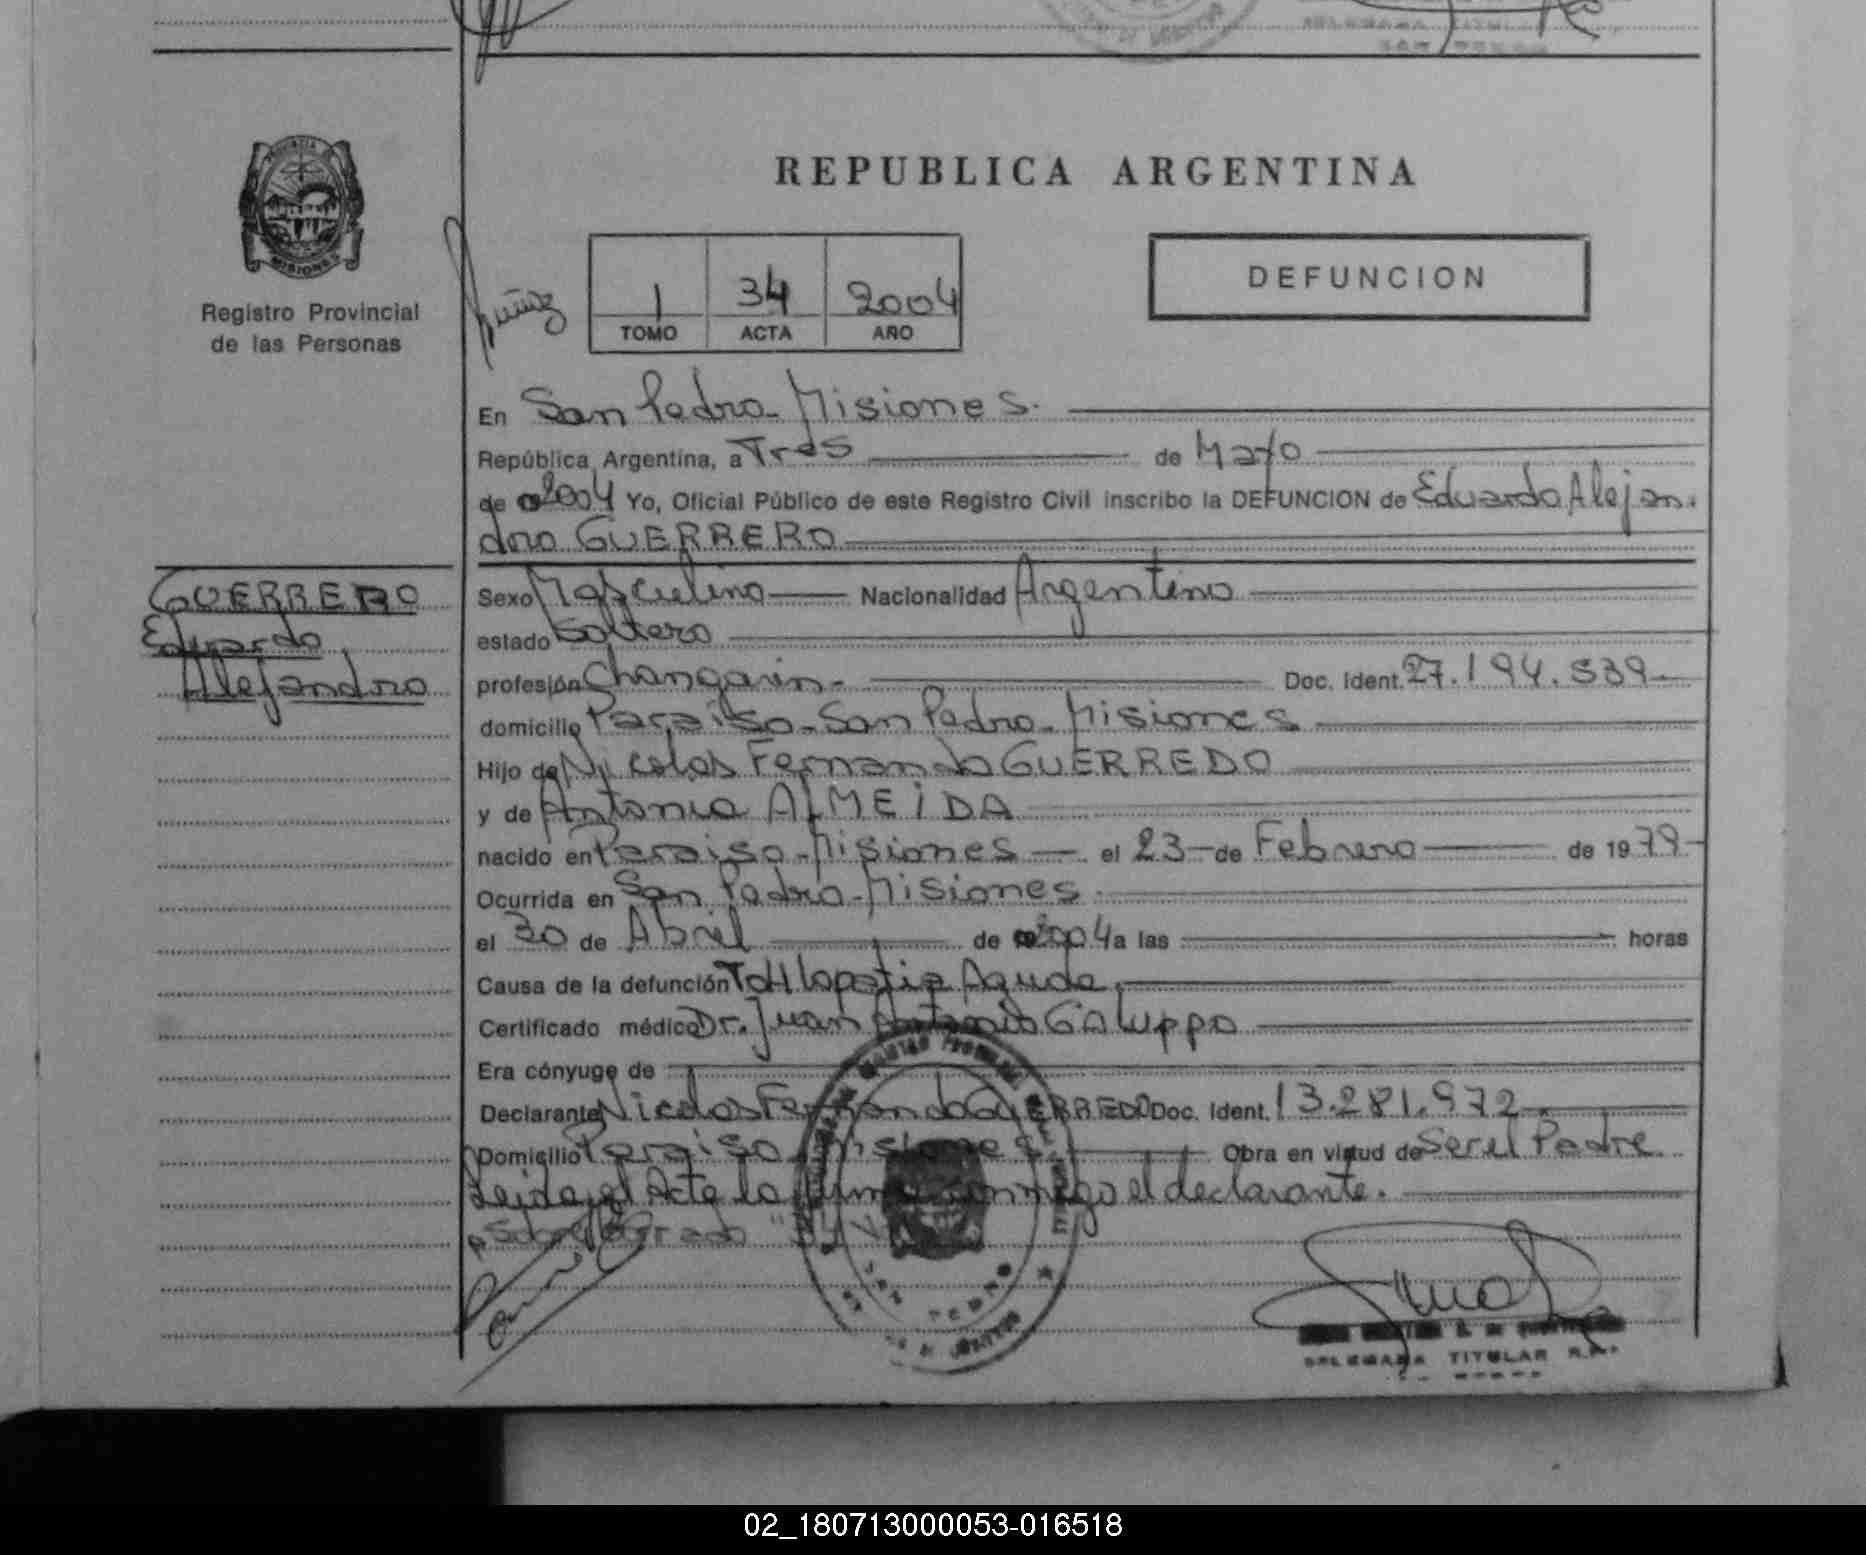 REPUBLICA ARGENTINA
Registro Provincial
de las Personas
1 34 2004
TOMO ACTA AÑO
DEFUNCION
En San Pedro - Misiones.
República Argentina, a Tres de Mayo
de 2004 Yo, Oficial Público de este Registro Civil inscribo la DEFUNCION de Eduardo Alejan-
dro GUERRERO
GUERRERO
Eduardo
Alejandro
Sexo Masculino Nacionalidad Argentino
estado Soltero
profesión Changarin - Doc. Ident. 27.194.539
domicilio Paraiso - San Pedro - Misiones
Hijo de Nicolas Fernando GUERREDO
y de Antonia ALMEIDA
nacido en Paraiso - Misiones el 23 de Febrero de 1979
Ocurrida en San Pedro - Misiones
el 30 de Abril de 2004 a las horas
Causa de la defunción Aguda
Certificado médico Dr. Juan Antonio Galuppo
Era cónyuge de
Declarante Nicolas Fernando GUERREDO Doc. Ident. 13.281.972
Domicilio Paraiso Misiones Obra en virtud de Ser el Padre
Leida el Acta la firma conmigo el declarante.
Sobre
SAN PEDRO
TITULAR
02_180713000053-016518